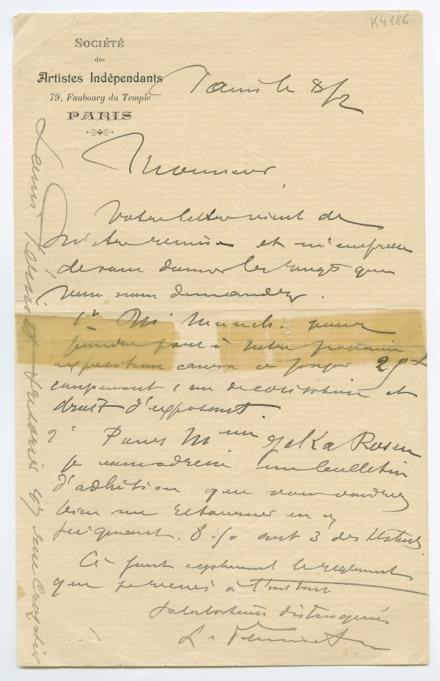 K4186
SOCIÉTÉ
des
Artistes Indépendants
79, Faubourg du Temple
PARIS
Paris le 8/2
Monsieur,
Votre lettre vient de
m'être remise et m'empresse
de vous donner les rengts que
vous nous demandez.
1° Mr Munch pour
prendre part à notre prochaine
exposition aura à payer 25 f
comprenant sa cotisation et
droit d'exposant.
2° Pour Melle Jelka Rosen
je vous adresse un bulletin
d'adhésion que vous voudrez
bien me retourner en y
joignant
Ci joint également le règlement
que je reçois à l'instant
Salutations distinguées
L.
Louis trésorier 67 rue